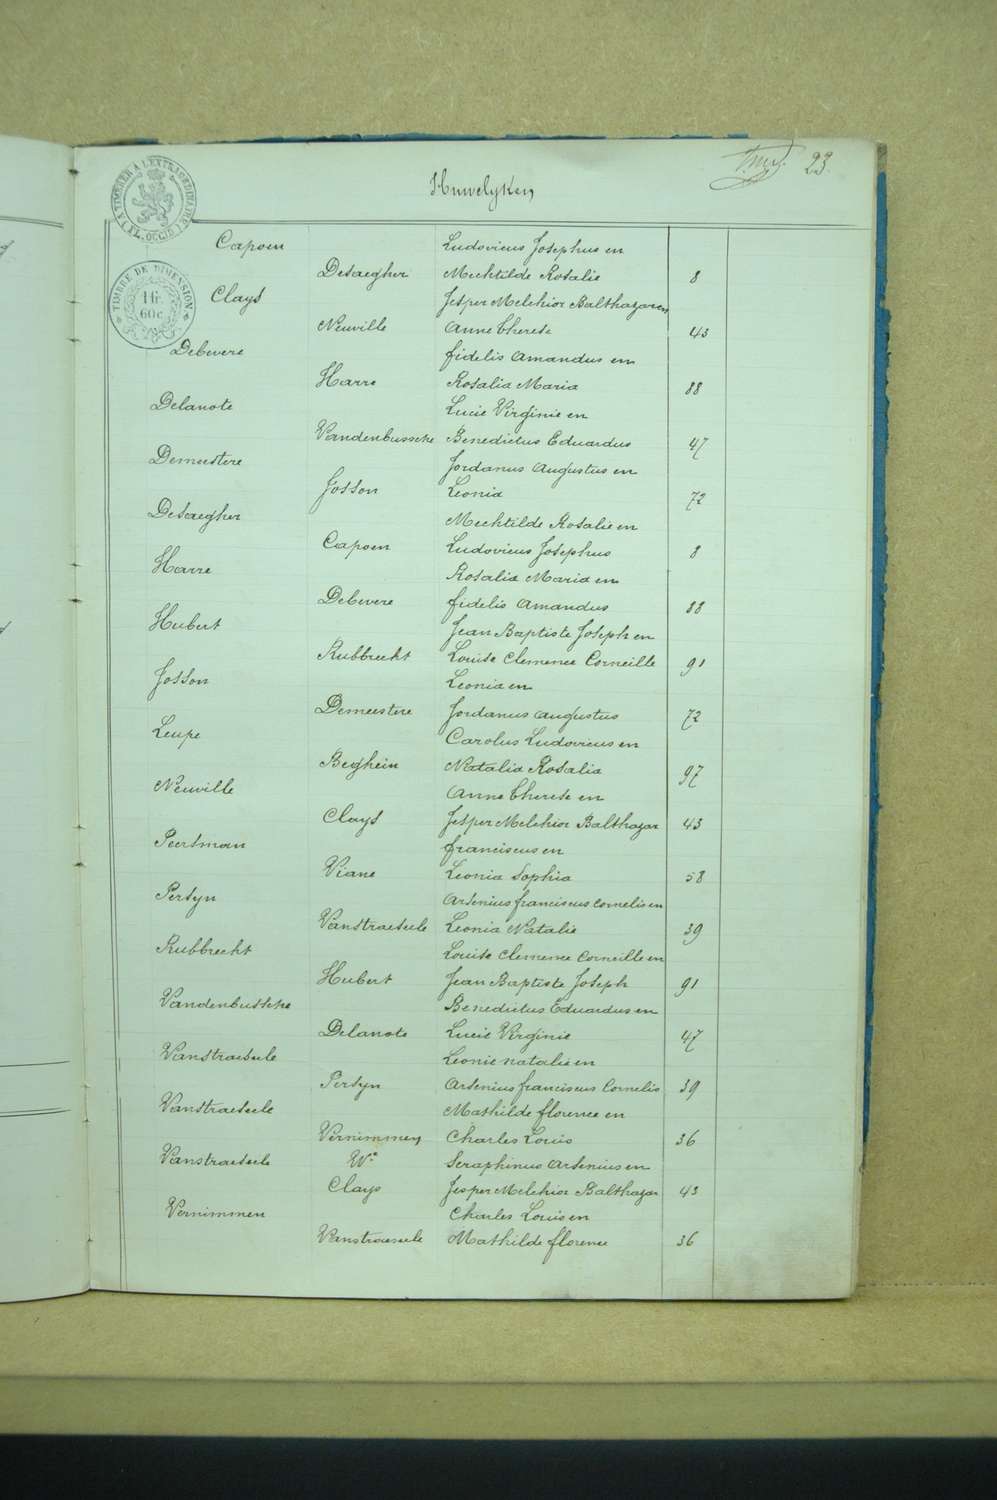 23.
Huwelyken
A TIMBRER A L'EXTRAORDINAIRE (FL. OCCID)
TIMBRE DE DIMENSION
1 fr.
60c.
Capoen Ludovicus Josephus en
Desaegher Mechtilde Rosalie 8
Clays Jesper Melchior Balthazar en
Neuville Anne Therese 43
Debevere fidelis Amandus en
Harre Rosalia Maria 88
Delanote Lucie Virginie en
Vandenbussche Benedictus Eduardus 47
Demeestere Jordanus Augustus en
Josson Leonia 72
Desaegher Mechtilde Rosalie en
Capoen Ludovicus Josephus 8
Harre Rosalia Maria en
Debevere fidelis Amandus 88
Hubert Jean Baptiste Joseph en
Rubbrecht Louise Clemence Corneille 91
Josson Leonia en
Demeestere Jordanus Augustus 72
Leupe Carolus Ludovicus en
Beghein Natalia Rosalia 97
Neuville Anne Therese en
Clays Jesper Melchior Balthazar 43
Peertman franciscus en
Viane Leonia Sophia 58
Persyn Arsenius franciscus Cornelis en
Vanstraeseele Leonia Natalie 39
Rubbrecht Louise Clemence Corneille en
Hubert Jean Baptiste Joseph 91
Vandenbussche Benedictus Eduardus en
Delanote Lucie Virginie 47
Vanstraeseele Leonie natalie en
Persyn Arsenius franciscus Cornelis 39
Vanstraeseele Mathilde florence en
Vernimmen Charles Louis 36
Vanstraeseele We Seraphinus Arsenius en
Clays Jesper Melchior Balthazar 43
Vernimmen Charles Louis en
Vanstraeseele Mathilde florence 36